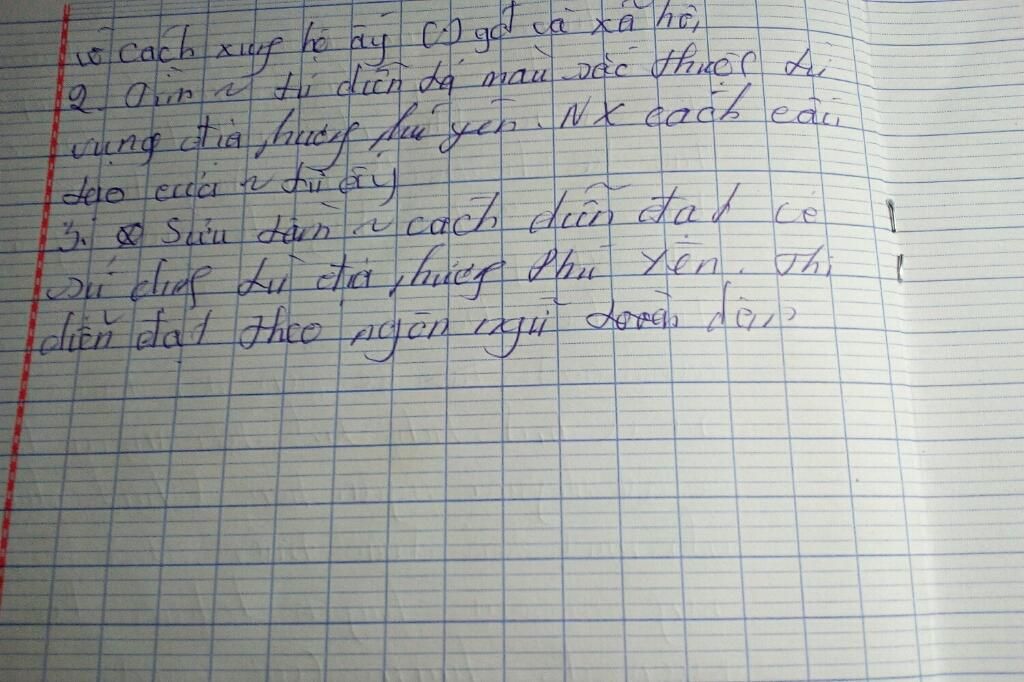 về cách xưng hô ấy (.) gđ và xã hội
2. Tìm ~ từ diễn tả màu sắc thuộc từ
vựng địa phương Phú yên. NX cách cấu
tạo của ~ từ ấy
3. Sưu tầm ~ cách diễn đạt có
sử dụng từ địa phương Phú Yên. Thi
diễn đạt theo ngôn ngữ toàn dân